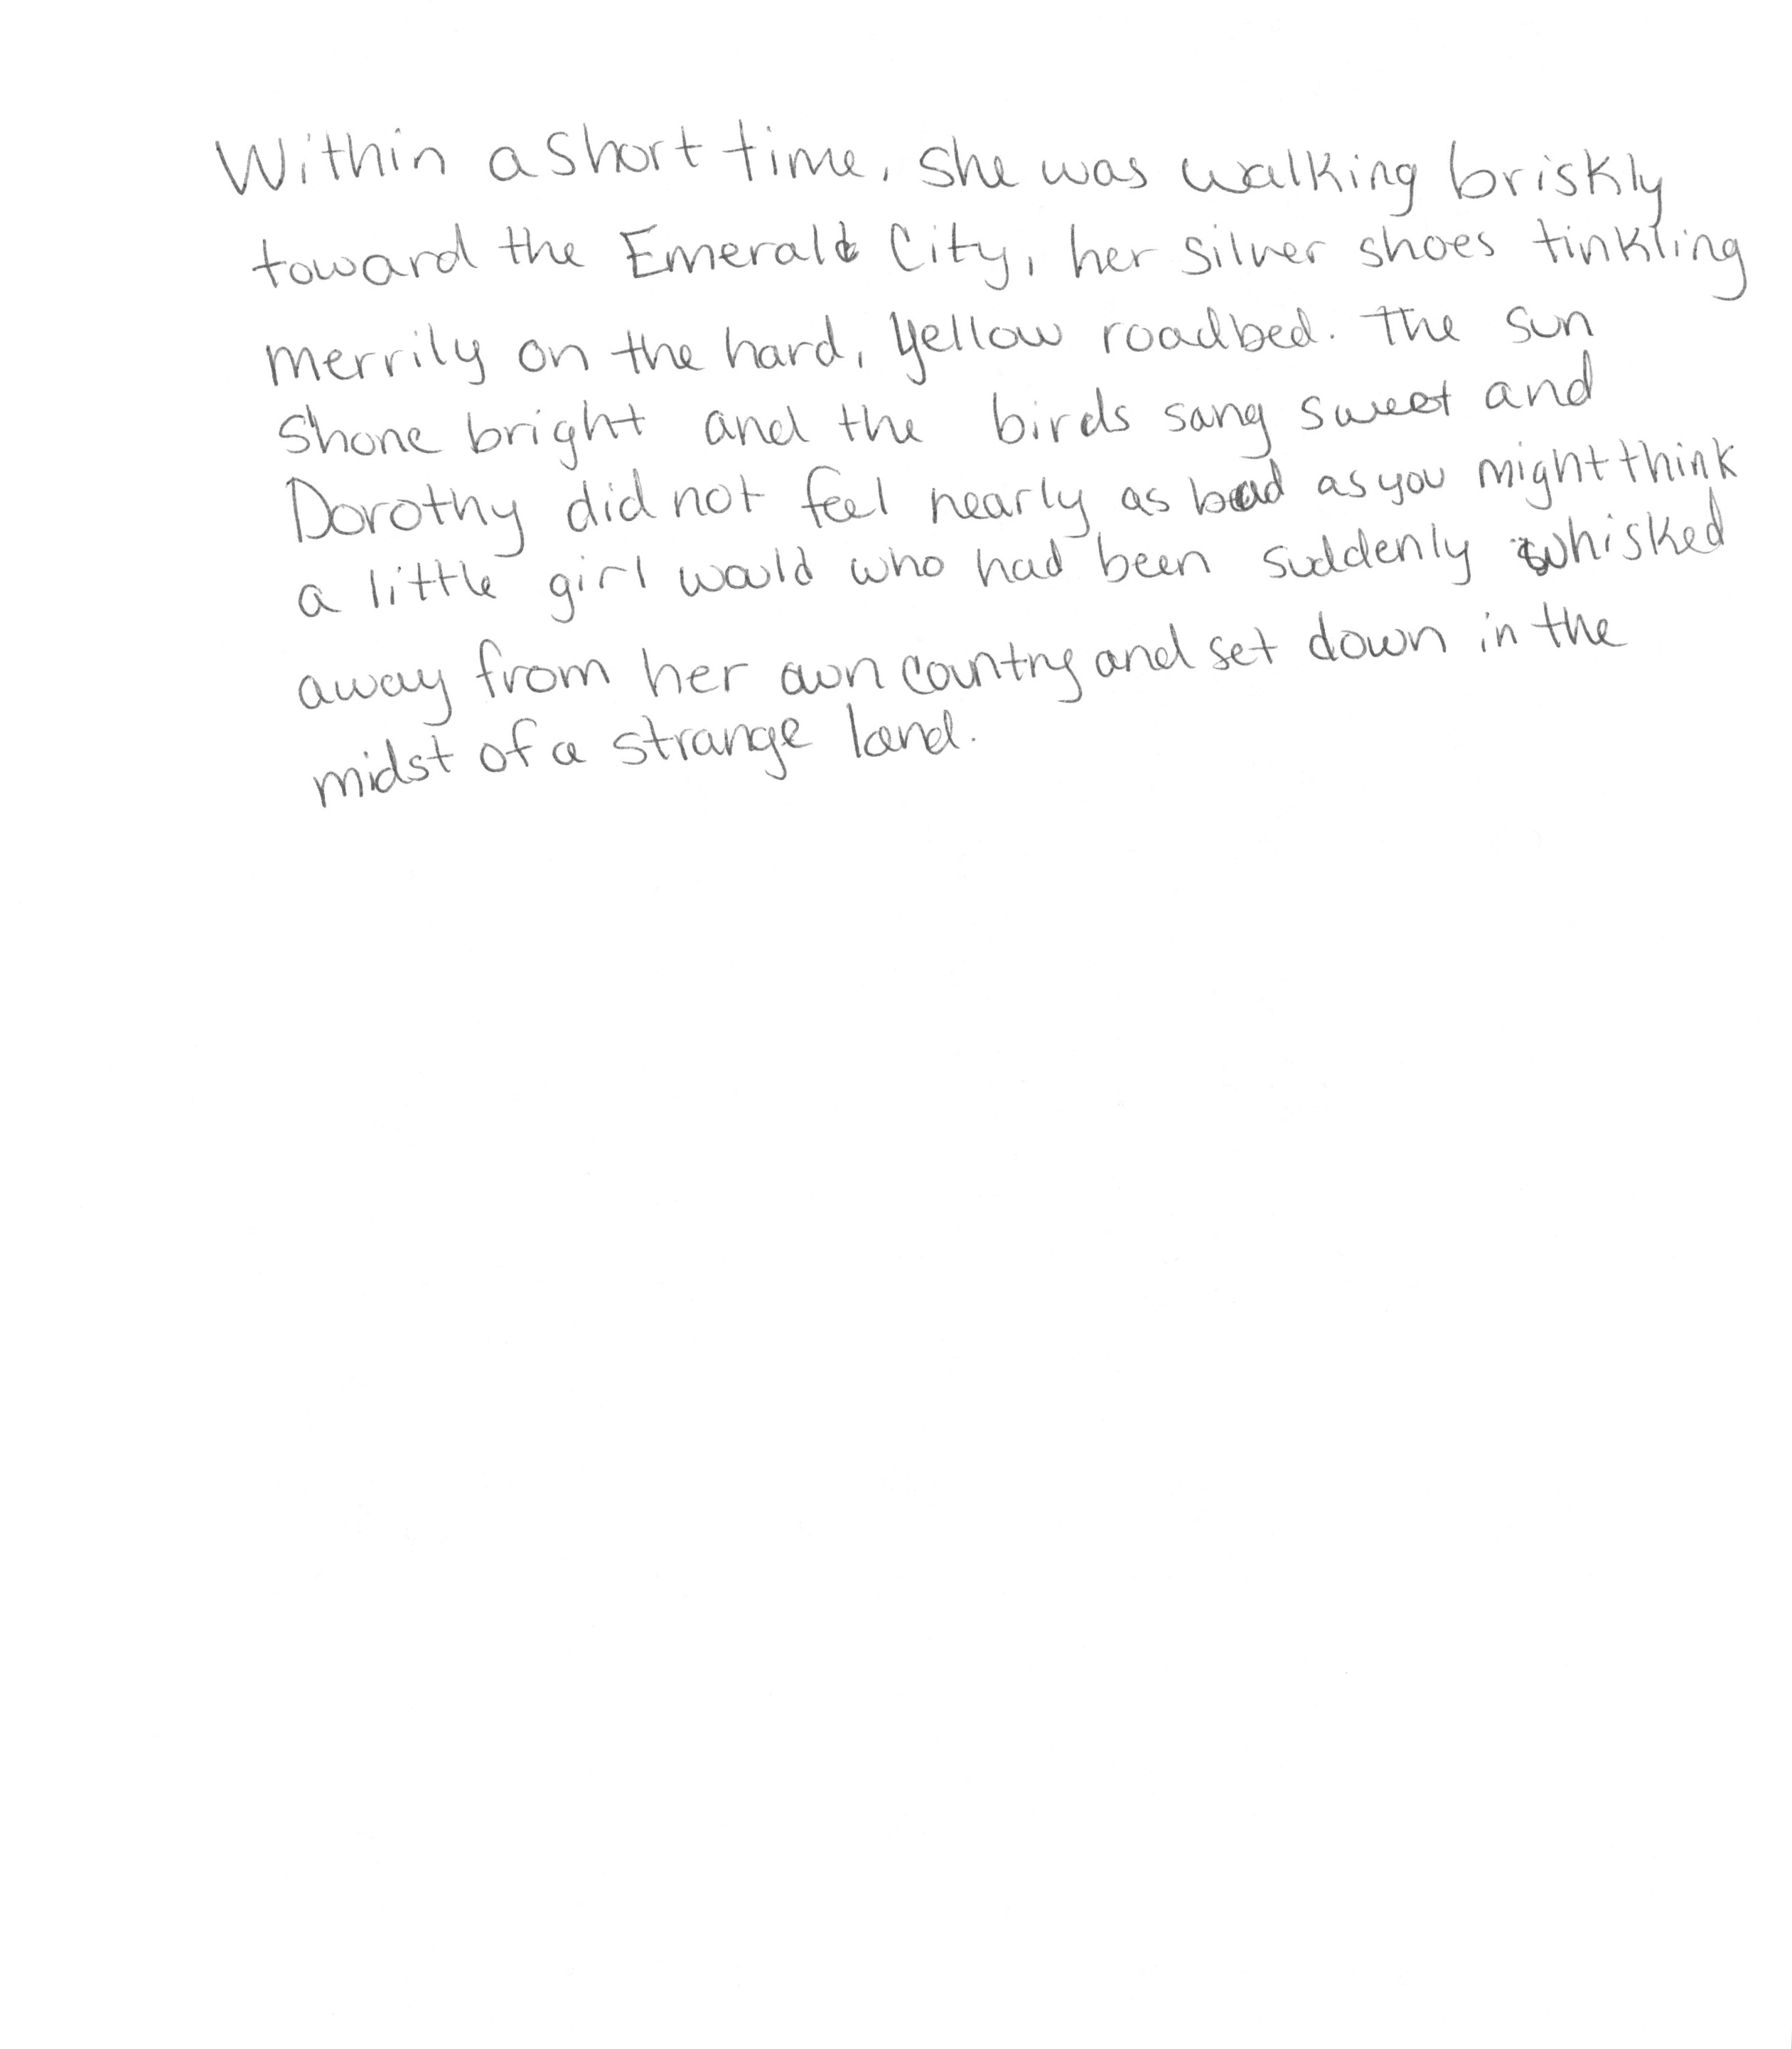 Within a short time, she was walking briskly
toward the Emerald City, her silver shoes tinkling
merrily on the hard, yellow roadbed. The sun
shone bright and the birds sang sweet and
Dorothy did not feel nearly as bad as you might think
a little girl would who had been suddenly whisked
away from her own country and set down in the
midst of a strange land.